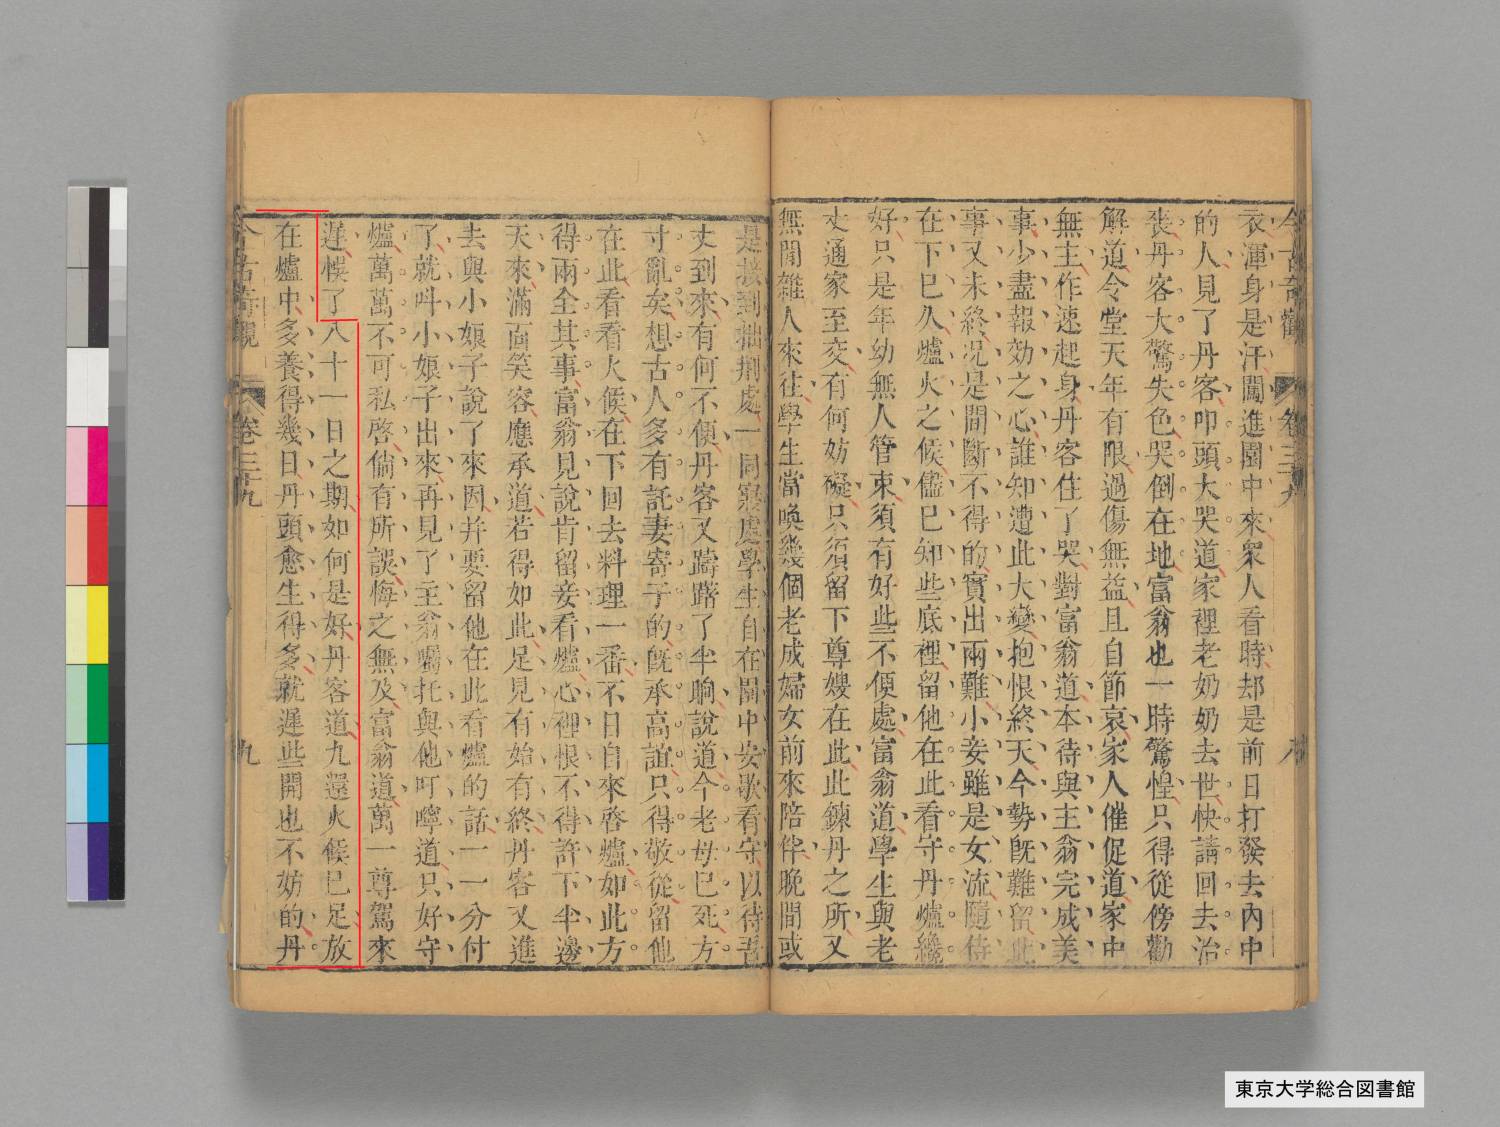 今古奇觀 卷三十九 八
衣渾身是汗闖進園中來衆人看時却是前日打發去內中
的人見了丹客叩頭大哭道家裡老奶奶去世快請回去治
喪丹客大驚失色哭倒在地富翁也一時驚惶只得從傍勸
解道令堂天年有限過傷無益且自節哀家人催促道家中
無主作速起身丹客住了哭對富翁道本待與主翁完成美
事少盡報効之心誰知遭此大變抱恨終天今勢旣難留此
事又未終况是間斷不得的實出兩難小妾雖是女流隨侍
在下巳久爐火之候儘巳知些底裡留他在此看守丹爐纔
好只是年幼無人管束須有好些不便處富翁道學生與老
丈通家至交有何妨礙只須留下尊嫂在此此鍊丹之所又
無閒雜人來往學生當喚幾個老成婦女前來陪伴晚間或
是接到拙荆處一同寢處學生自在園中安歇看守以待吾
丈到來有何不便丹客又躊躇了半晌說道今老母巳死方
寸亂矣想古人多有託妻寄子的旣承高誼只得敬從留他
在此看看火候在下回去料理一番不日自來啓爐如此方
得兩全其事富翁見說肯留妾看爐心裡恨不得許下半邊
天來滿面笑容應承道若得如此足見有始有終丹客又進
去與小娘子說了來因并要留他在此看爐的話一一分付
了就呌小娘子出來再見了主翁囑托與他叮嚀道只好守
爐萬萬不可私啓倘有所誤悔之無及富翁道萬一尊駕來
遲悞了八十一日之期如何是好丹客道九還火候巳足放
在爐中多養得幾日丹頭愈生得多就遲些開也不妨的丹
今古奇觀 卷三十九 九
東京大学総合図書館